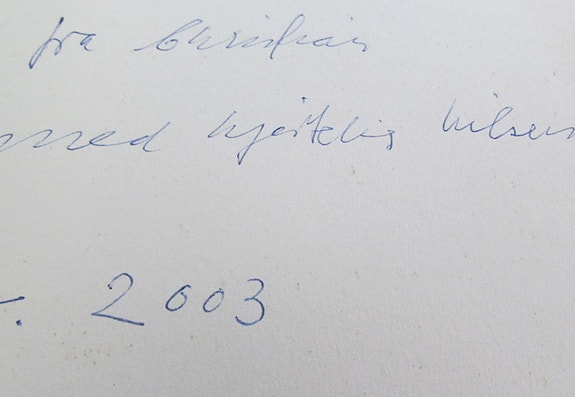 fra Christian
med hjertelig hilsen
. 2003